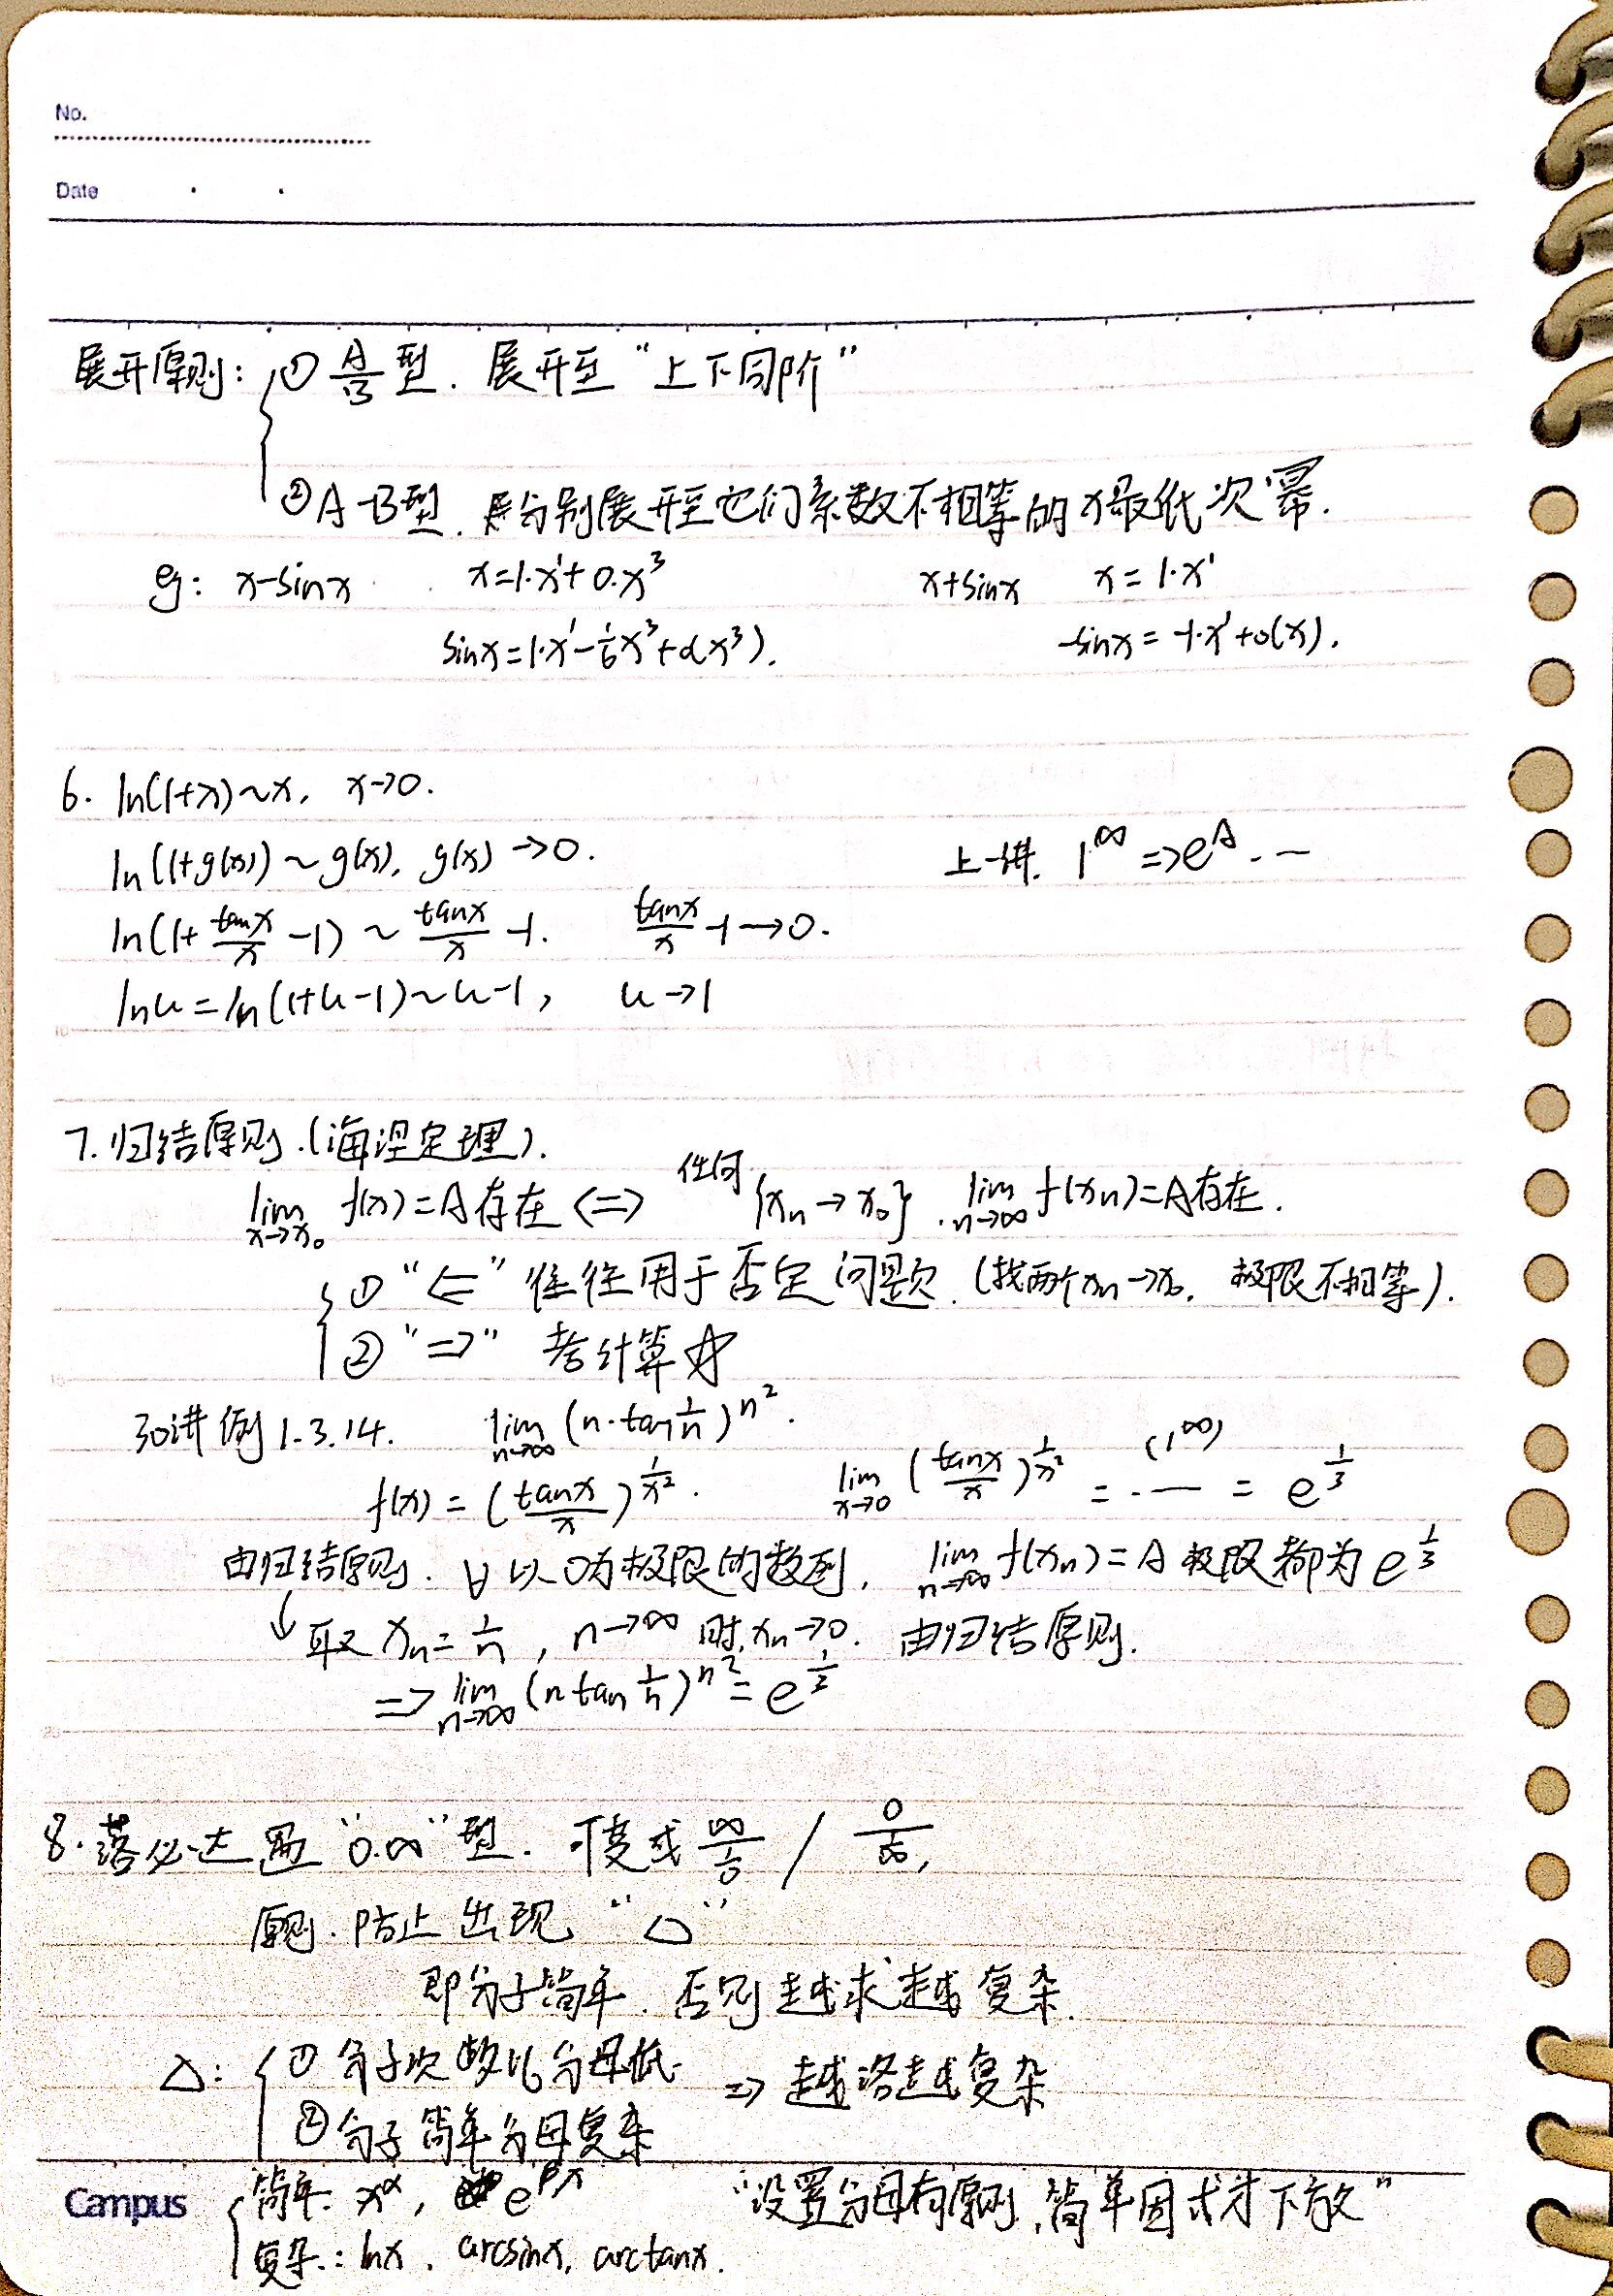 No.
Date
展开原则: ① A/B 型. 展开至 "上下同阶"
② A-B型. 分别展开至它们系数不相等的x最低次幂.
eg: x-sinx x=1·x¹+0·x³ x+sinx x=1·x¹
sinx=1·x¹-1/6x³+o(x³). -sinx=-1·x¹+o(x).
6. ln(1+x)~x, x→0.
ln(1+g(x))~g(x), g(x)→0. 上一讲. 1^∞ ⇒e^A ...
ln(1+tanx/x-1)~tanx/x-1. tanx/x-1→0.
lnu=ln(1+u-1)~u-1, u→1
7.归结原则.(海涅定理).
lim x→x₀ f(x)=A存在 ⟺ 任何{xₙ→x₀}. lim n→∞ f(xₙ)=A存在.
① "⇐" 往往用于否定问题.(找两个xₙ→x₀, 极限不相等).
② "⇒" 考计算
30讲例1.3.14. lim n→∞ (n·tan1/n)^n².
f(x)=(tanx/x)^1/x². lim x→0 (tanx/x)^1/x² = ... (1^∞) = e^1/3
由归结原则. ∀以0为极限的数列, lim n→∞ f(xₙ)=A极限都为e^1/3
↓取xₙ=1/n, n→∞时,xₙ→0. 由归结原则.
⇒lim n→∞ (n tan 1/n)^n²=e^1/3
8.落必达 "0·∞"型. 可变成 ∞/∞ / 0/0,
原则.防止出现 "△"
即分子简单. 否则越求越复杂.
△: ① 分子次数比分母低.
② 分子简单分母复杂 ⇒ 越洛越复杂
Campus 简单: x^α, e^βx "设置分母有原则,简单因式才下放"
复杂: lnx, arcsinx, arctanx.